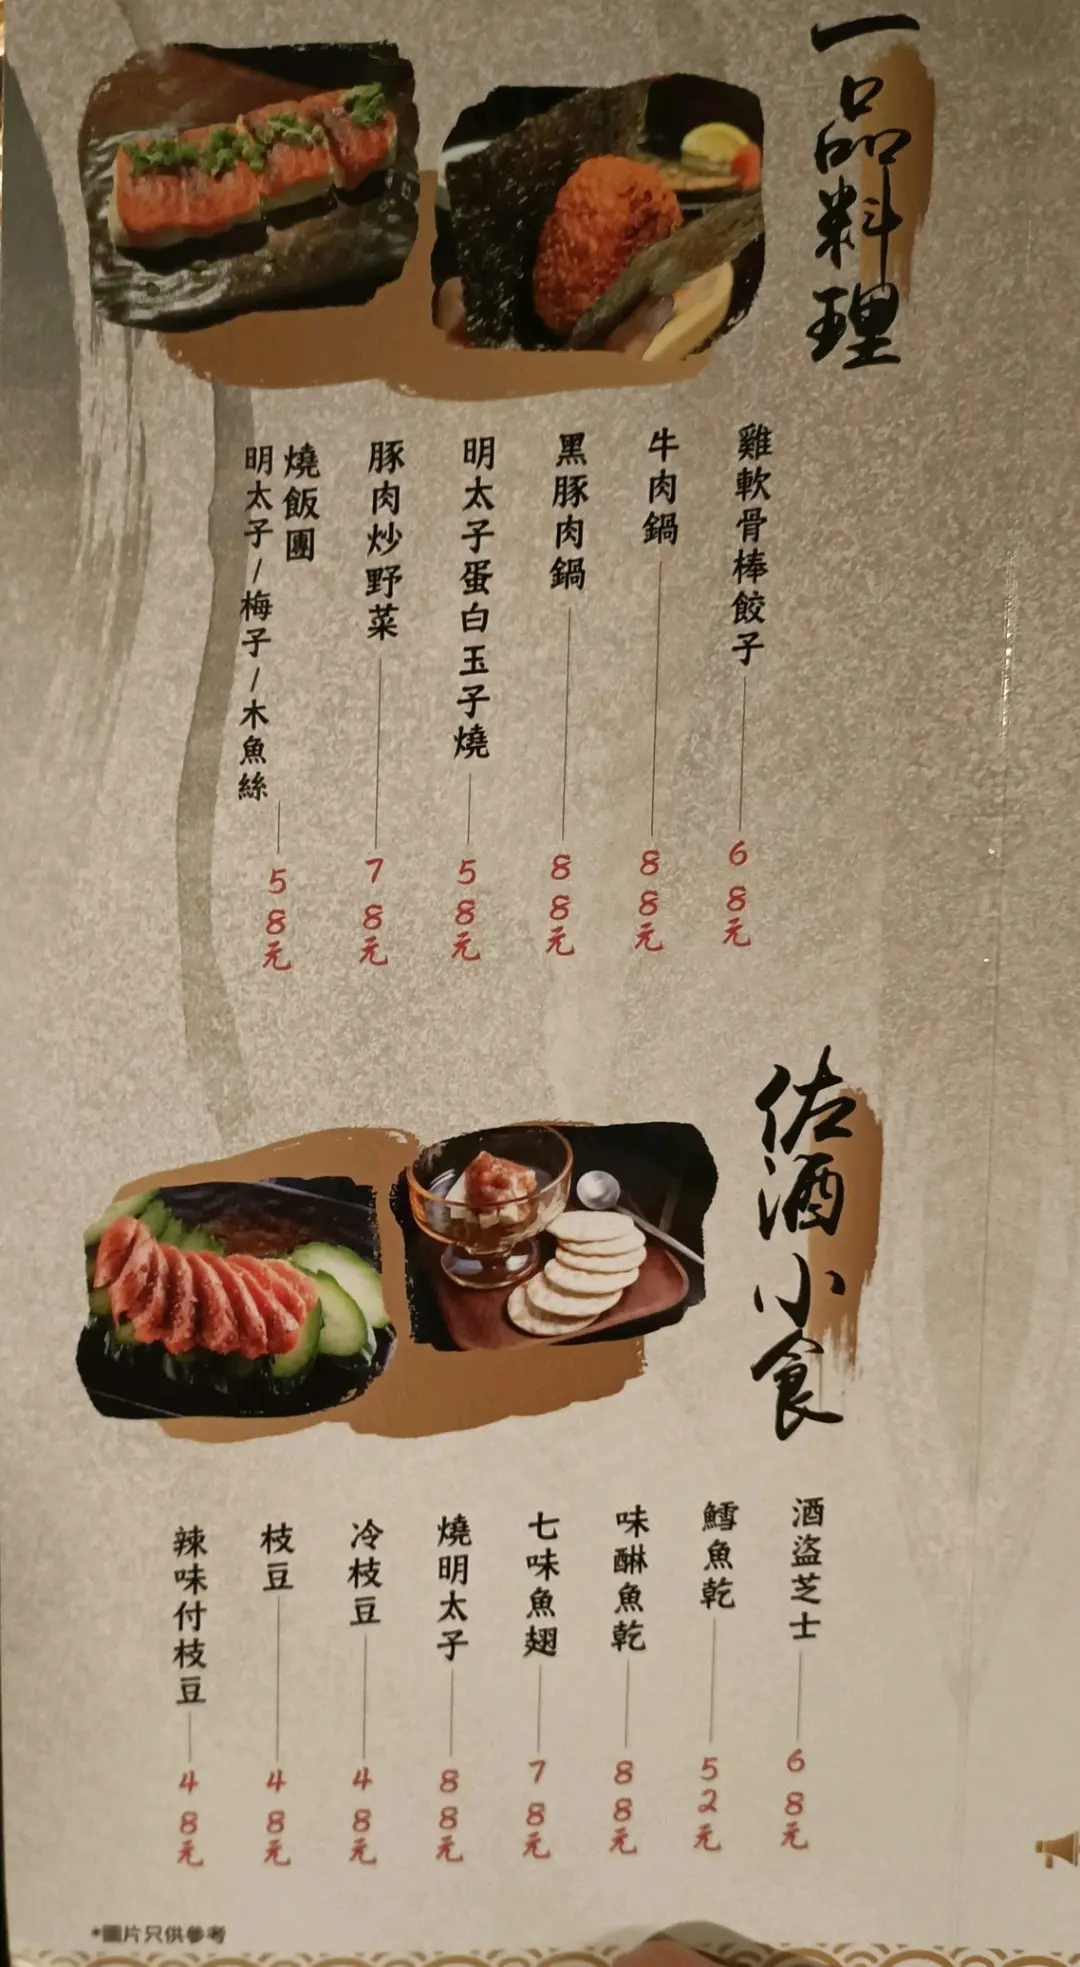 一品料理
雞軟骨棒餃子 68元
牛肉鍋 88元
黑豚肉鍋 88元
明太子蛋白玉子燒 58元
豚肉炒野菜 78元
燒飯團
明太子/梅子/木魚絲 58元
佐酒小食
酒盜芝士 68元
鱈魚乾 52元
味醂魚乾 88元
七味魚翅 78元
燒明太子 88元
冷枝豆 48元
枝豆 48元
辣味付枝豆 48元
*圖片只供參考